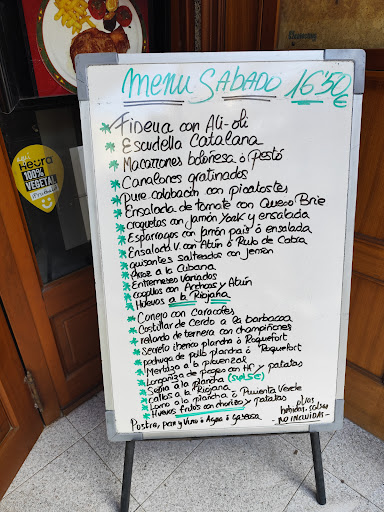 MENU SABADO 16'50 €
Fideua con Ali-oli
Escudella Catalana
Macarrones boloñesa ó pestó
Canalones gratinados
pure calabacín con picatostes
Ensalada de tomate con Queso Brie
croquetas con jamón york y ensalada
Esparragos con jamón pais ó ensalada
Ensalada V. con Atún ó Rulo de Cabra
guisantes salteados con jamón
Arroz a la Cubana
Entremeses Variados
cogollos con Anchoas y Atún
Huevos a la Riojana
Conejo con Caracoles
Costillar de Cerdo a la barbacoa
redondo de ternera con champiñones
Secreto iberico plancha ó Roquefort
pechuga de pollo plancha ó Roquefort
Merluza a la provenzal
Longaniza de pages con HF y patatas
Sepia a la plancha (supl 5€)
callos a la Riojana
Lomo a la plancha ó Pimienta Verde
Huevos fritos con chorizo y patatas
Postre, pan y Vino ó Agua ó Gaseosa
bebidas, salsas
-NO INCLUIDAS-
Heura
100%
VEGETAL